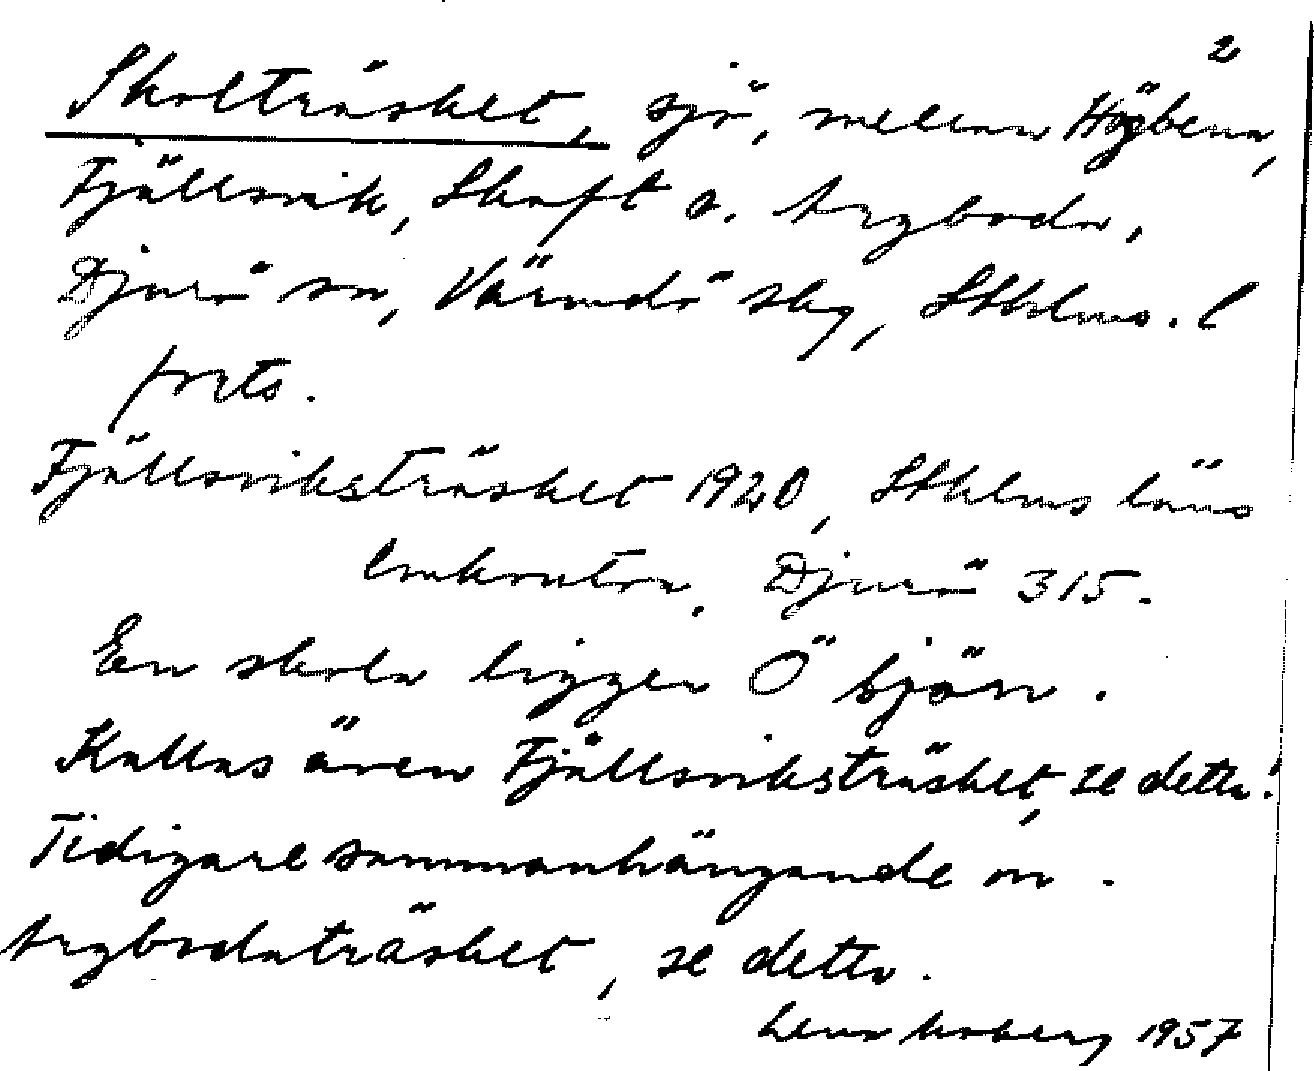 2
Skolträsket, sjö, mellan Högbena,
Fjällsvik, Skaft o. Argboda,
Djurö sn, Värmdö skg, Sthlms. l
forts.
Fjällsviksträsket 1920, Sthlms läns
Djurö 315.
En skola ligger Ö sjön.
Kallas även Fjällsviksträsket, se detta!
Tidigare sammanhängande m.
Argbodaträsket, se detta.
1957